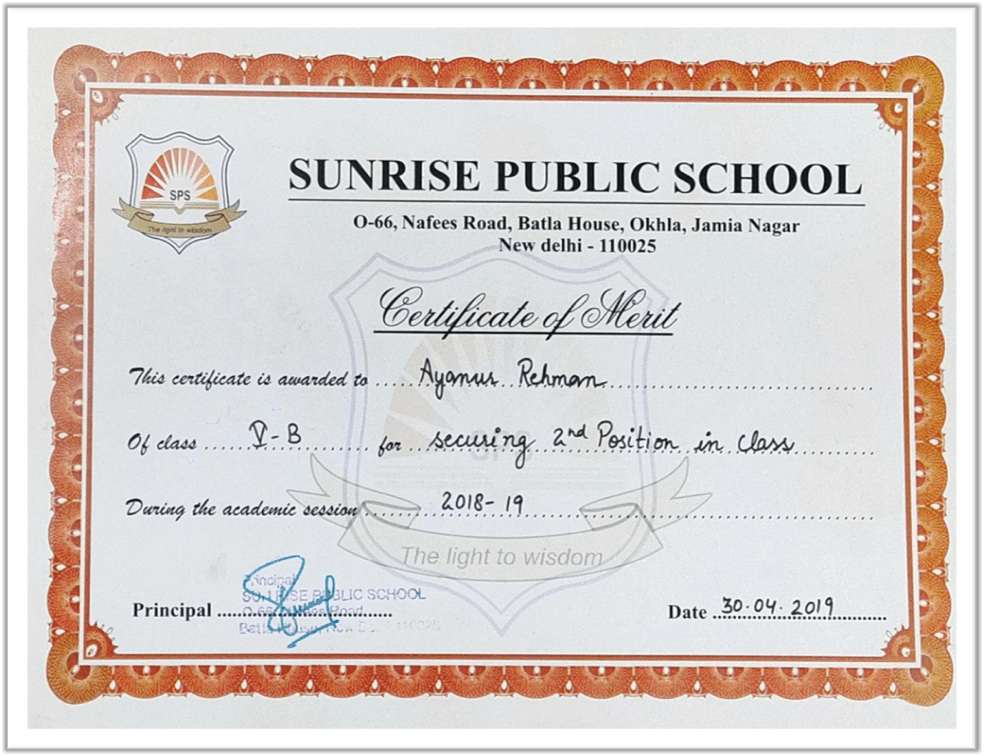 SPS
The light to wisdom
SUNRISE PUBLIC SCHOOL
O-66, Nafees Road, Batla House, Okhla, Jamia Nagar
New delhi - 110025
Certificate of Merit
This certificate is awarded to ..... Ayanur Rehman
Of class ..... V-B ..... for securing 2nd Position in Class
During the academic session 2018-19
The light to wisdom
Principal
SUNRISE PUBLIC SCHOOL
O-66, Road
Batla House, New
Principal
Date 30.04.2019